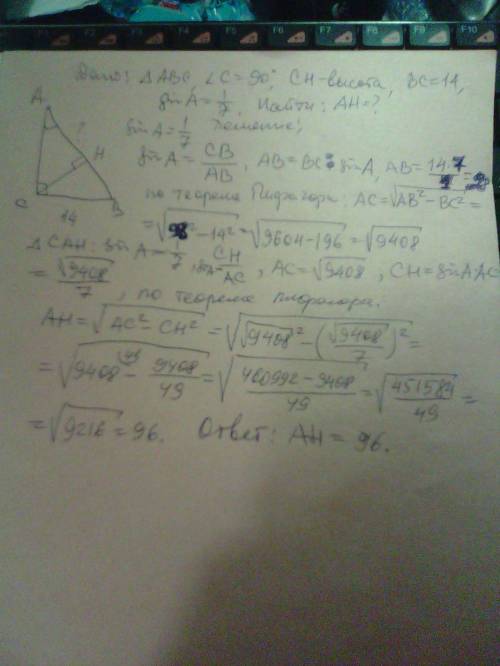 F5 F6 F7 F8 F9 F10
Дано: △ABC, ∠C=90°, CH-высота, BC=14,
sin A = 1/7. Найти: AH=?
Решение:
sin A = 1/7
sin A = CB/AB, AB = BC : sin A, AB = 14·7/1 = 98
по теореме Пифагора: AC = √(AB² - BC²) =
= √(98² - 14²) = √(9604 - 196) = √9408
△CAH: sin A = 1/7, sin A = CH/AC, AC = √9408, CH = sin A·AC
= √9408/7, по теореме Пифагора:
AH = √(AC² - CH²) = √(√9408² - (√9408/7)²) =
= √(9408 - 9408/49) = √((460992 - 9408)/49) = √(451584/49) =
= √9216 = 96. Ответ: AH = 96.
A
?
H
C
14
B